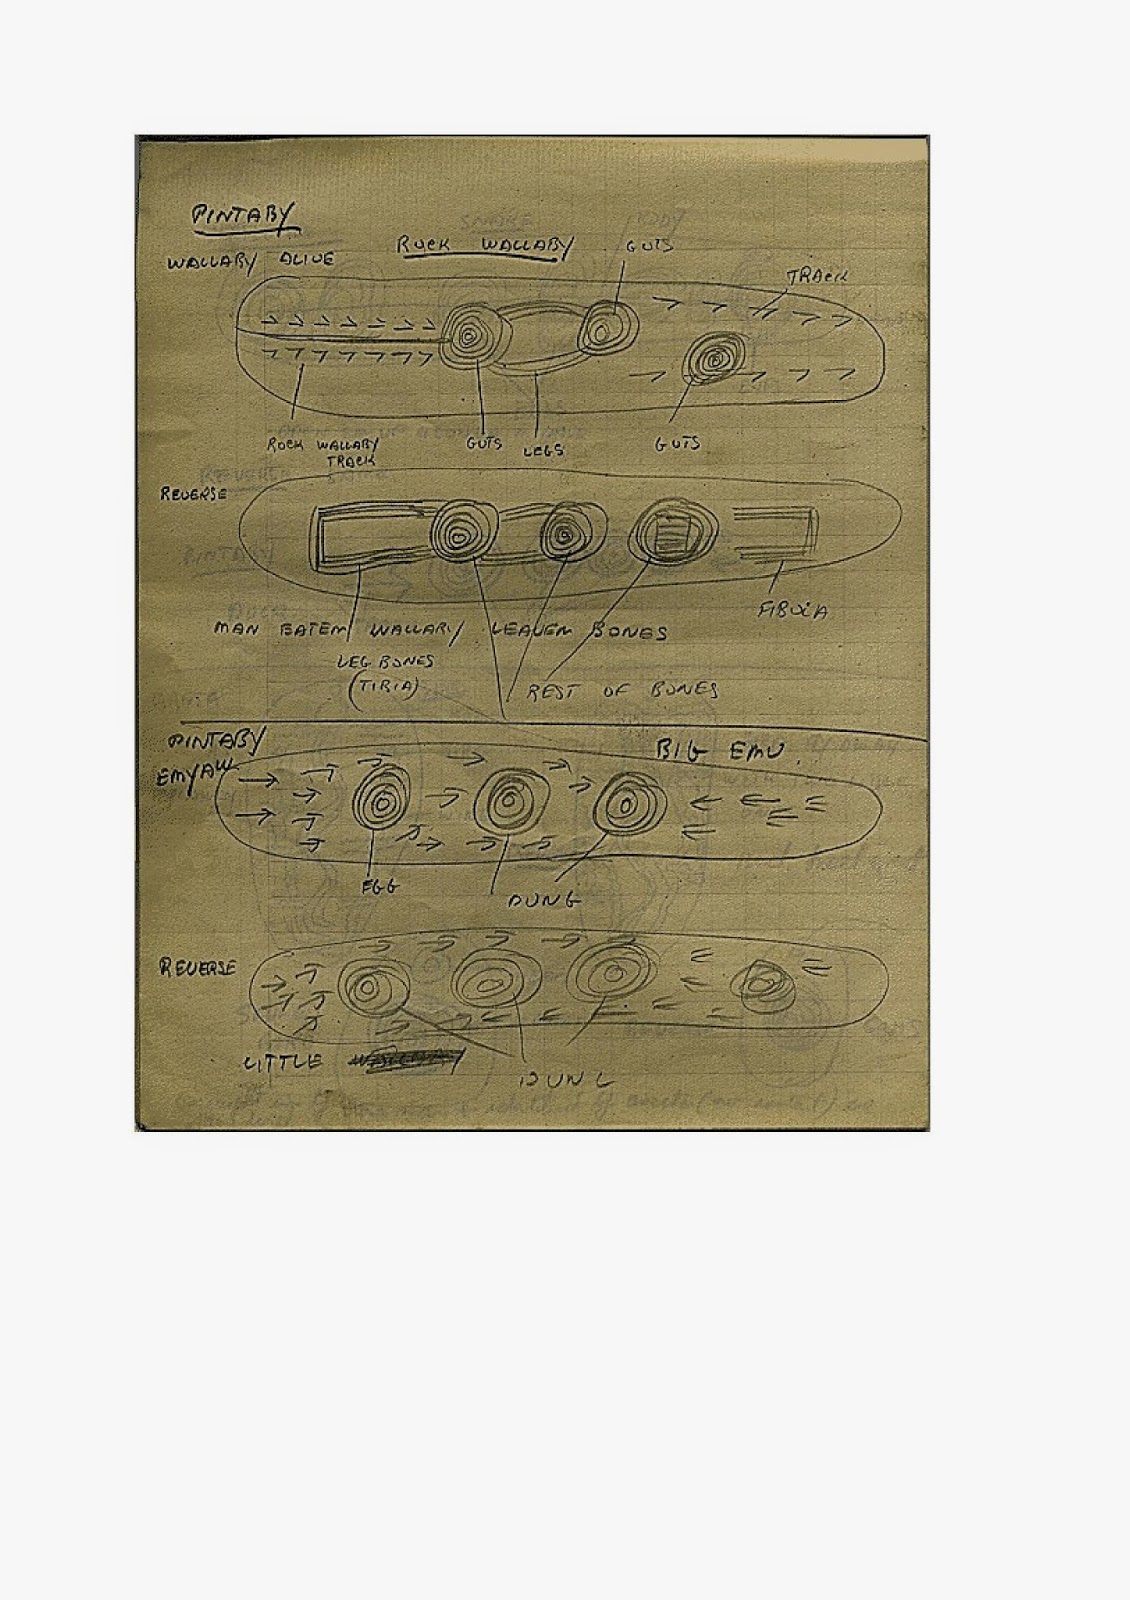 PINTABY
ROCK WALLABY
GUTS
WALLABY ALIVE
TRACK
ROCK WALLABY
TRACK
GUTS
LEGS
GUTS
REVERSE
FIBULA
MAN EATEM WALLABY LEAVEM BONES
LEG BONES
(TIBIA)
REST OF BONES
PINTABY
EMYAW
BIG EMU.
EGG
DUNG
REVERSE
LITTLE
DUNG